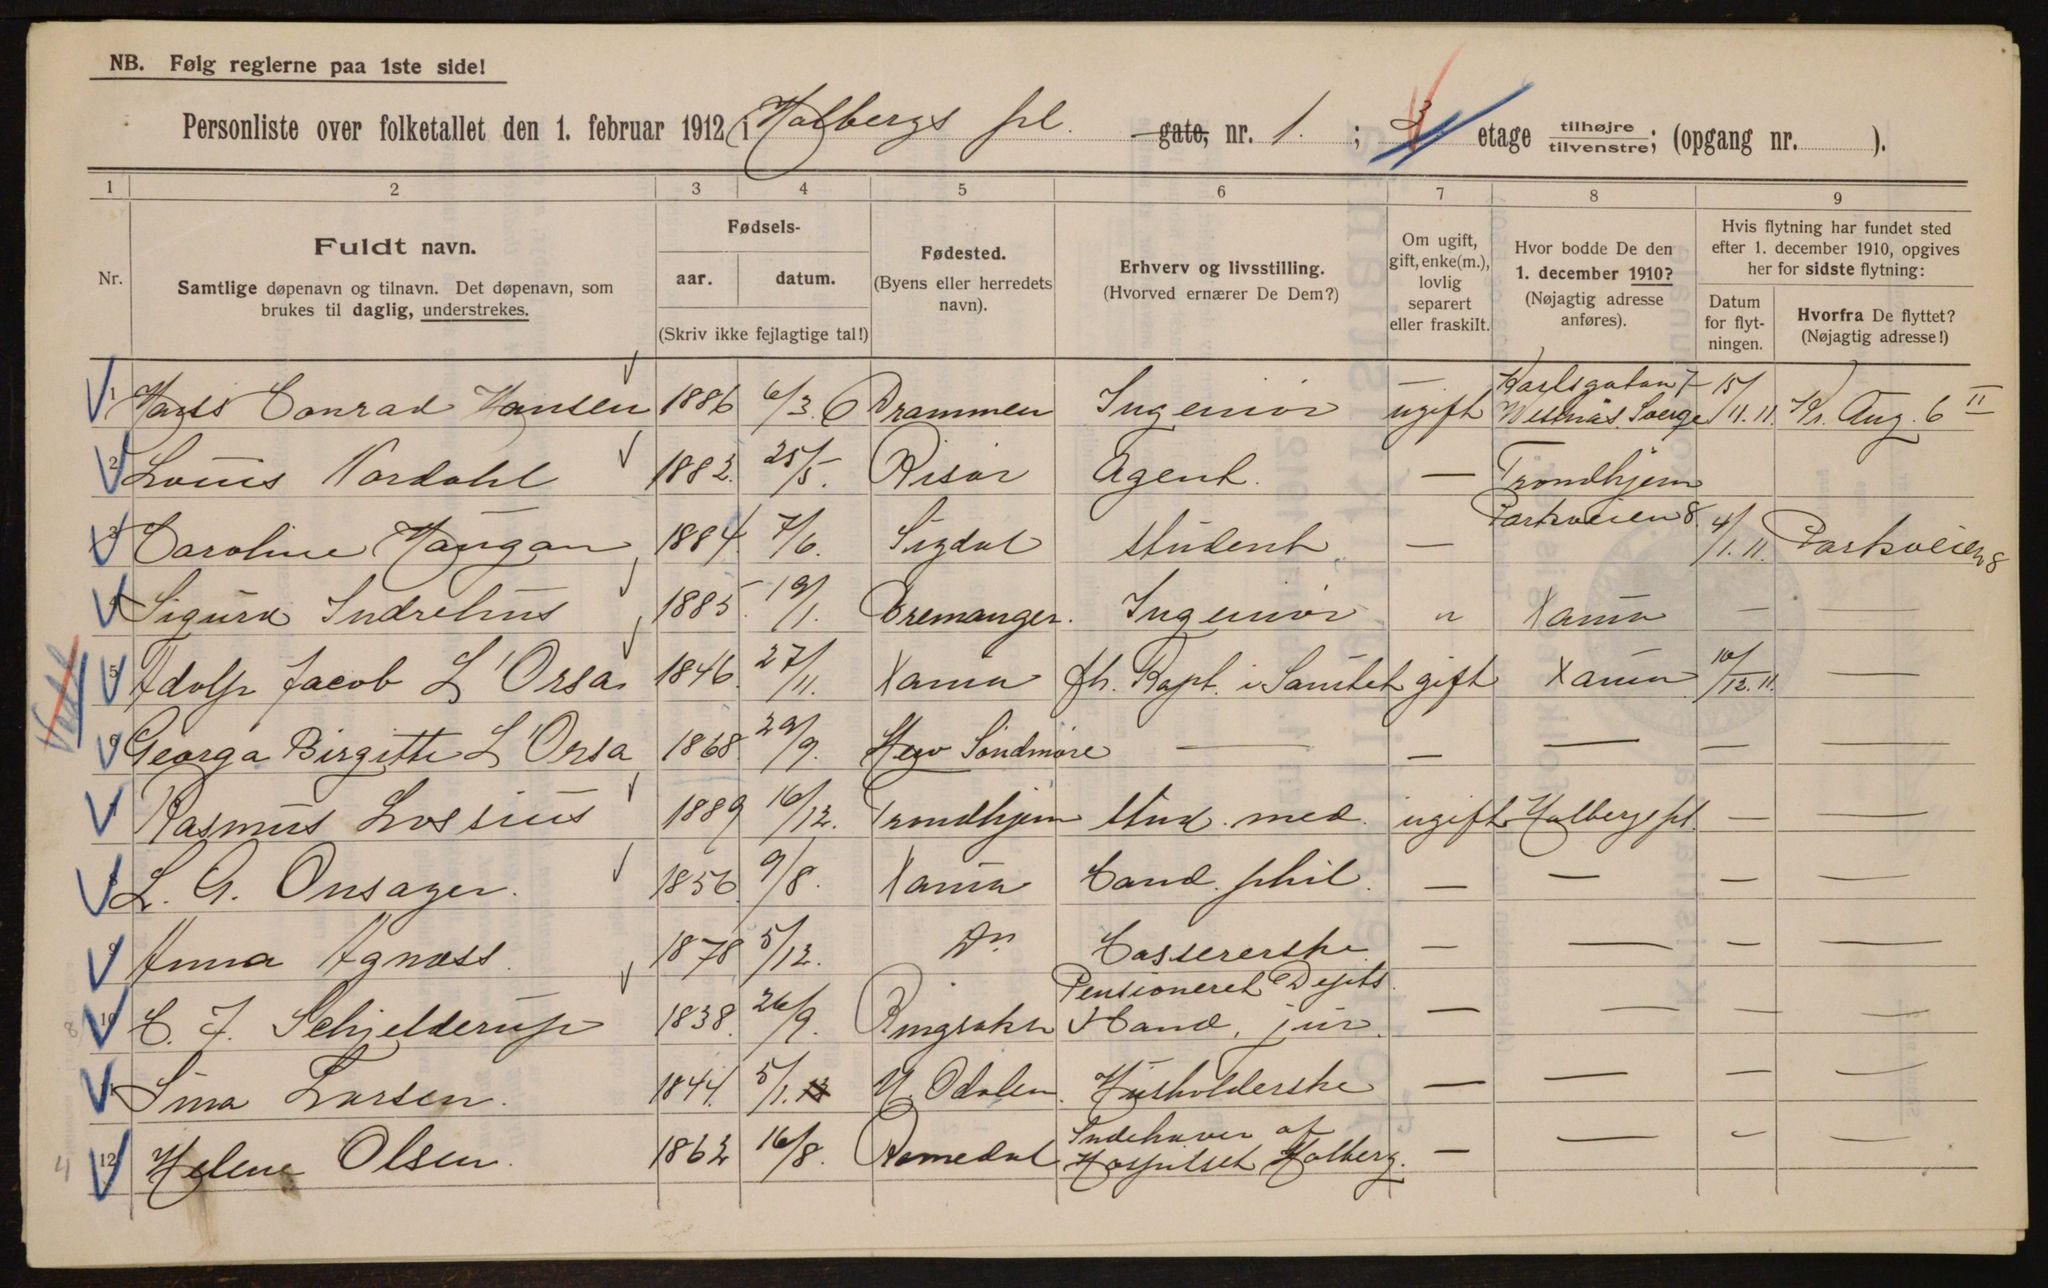 NB. Følg reglerne paa 1ste side!
Personliste over folketallet den 1. februar 1912 i Holbergs pl. gate, nr. 1. ; 3 etage tilhøjre tilvenstre; (opgang nr. ).
1 2 3 4 5 6 7 8 9
Nr.
Fuldt navn.
Samtlige døpenavn og tilnavn. Det døpenavn, som
brukes til daglig, understrekes.
Fødsels-
aar. datum.
(Skriv ikke fejlagtige tal!)
Fødested.
(Byens eller herredets
navn).
Erhverv og livsstilling.
(Hvorved ernærer De Dem?)
Om ugift,
gift, enke(m.),
lovlig
separert
eller fraskilt.
Hvor bodde De den
1. december 1910?
(Nøjagtig adresse
anføres).
Hvis flytning har fundet sted
efter 1. december 1910, opgives
her for sidste flytning:
Datum
for flyt-
ningen.
Hvorfra De flyttet?
(Nøjagtig adresse!)
1 Hans Conrad Hansen 1886 6/3. Drammen Ingeniør ugift Karlsgatan 7 15/11.11. Kr. Aug. 6 II
2 Louis Nordahl 1882. 25/5. Risør Agent. — Trondhjem
3 Caroline Haugan 1884. 7/6. Sigdal student — Parkveien 8. 4/1.11. Parkveien 8
4 Sigurd Indrehus 1885 19/1. Bremanger. Ingeniør " Xania — —
5 Adolf Jacob L'Orsa 1846. 27/11. Xania fh. Kapt. i gift Xania 10/12.11. —
6 Georga Birgitte L'Orsa 1868. 29/9. Herø Søndmøre — — — — —
7 Rasmus Lossius 1889 16/12. Trondhjem stud. med. ugift Holbergs pl. — —
8 L. G. Onsager. 1856 9/8. Xania Cand. phil. — — — —
9 Anna Agnæss. 1878 5/12. Do Cassererske. — — — —
10 C. J. Schjelderup 1838. 26/9. Ringsaker Pensioneret Cand. jur. — — — —
11 Sina Larsen. 1844. 5/1. N. Odalen. Husholderske — — — —
12 Helene Olsen. 1862 16/8. Romedal Indehaver af Hospitset Holberg. — — — —